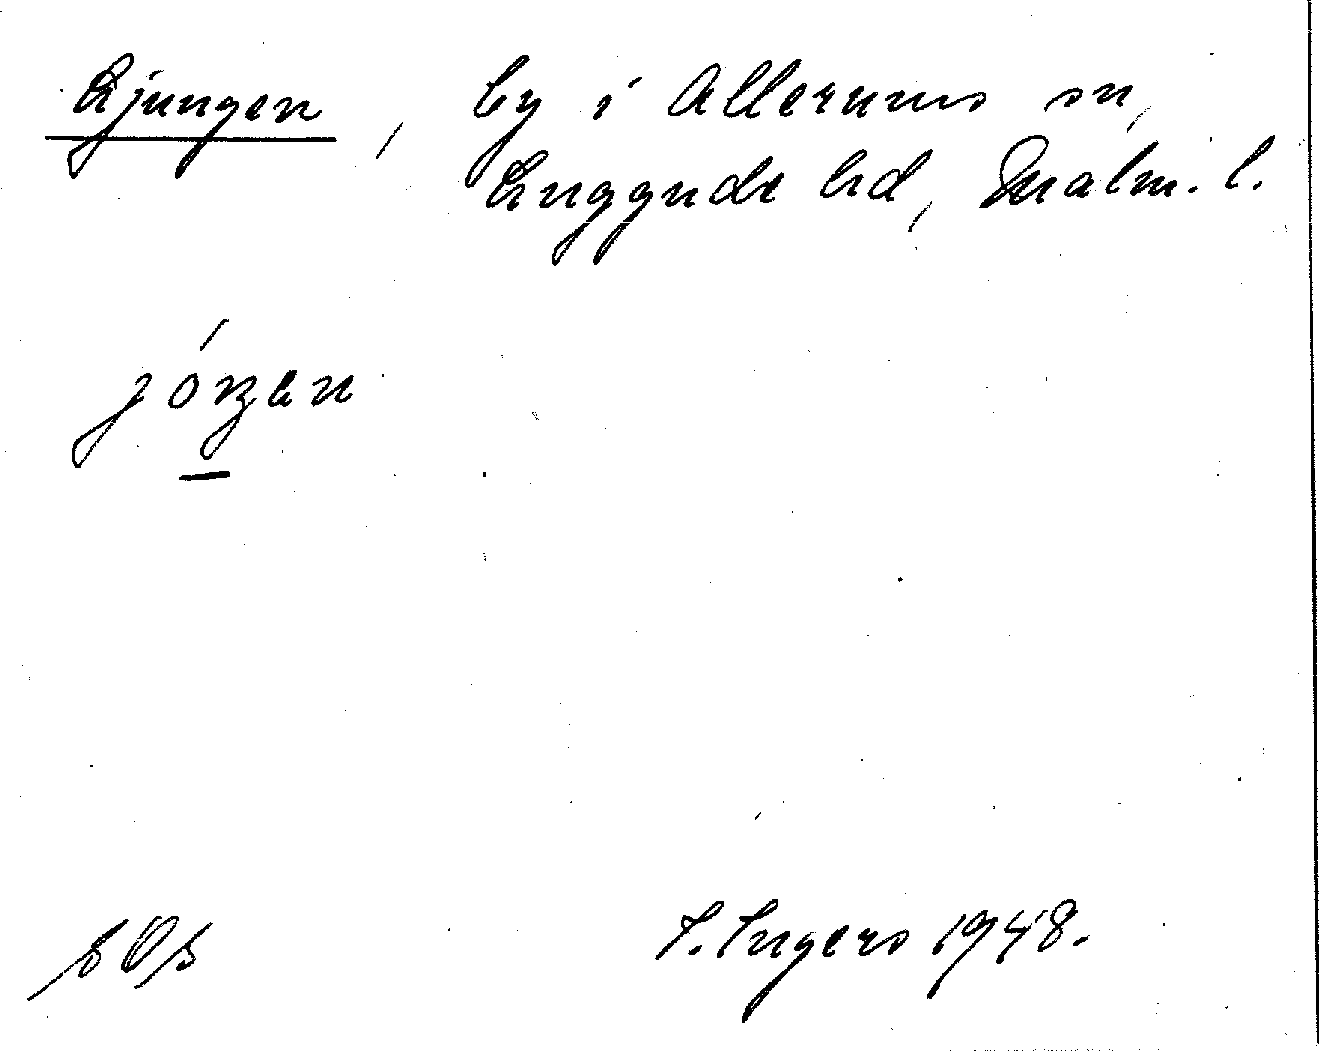 Ljungen, by i Allerums sn,
Luggude hd, Malm. l.
jóngen
I. Ingers 1948.